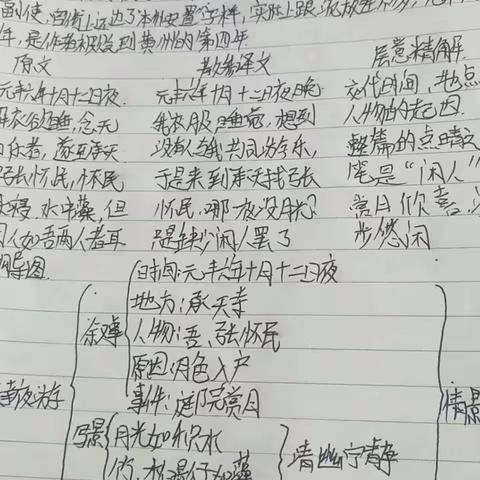 副使,官衔上还加了"本州安置"字样,实际上跟流放差不多,元
年,是作者被贬到黄州的第四年
原文 教参译文 层意精解
元丰六年十月十二日夜 元丰六年十月十二日夜晚 交代时间,地点
解衣欲睡,念无 我衣服,睡觉,想到 人物的起因
乐者,遂至承天 没有与我共同游乐, 整篇的点睛之
张怀民,怀民 于是来到承天寺找张 笔是"闲人"
寝,水中藻,但 怀民,哪一夜没月光? 赏月欣喜,
闲人如吾两人者耳 只是缺少闲人罢了 步悠闲
导图
时间:元丰六年十月十二日夜
叙事 地方:承天寺
人物:吾、张怀民
原因:月色入户
夜游 事件:庭院赏月 情景
写景 月光如积水 清幽宁静